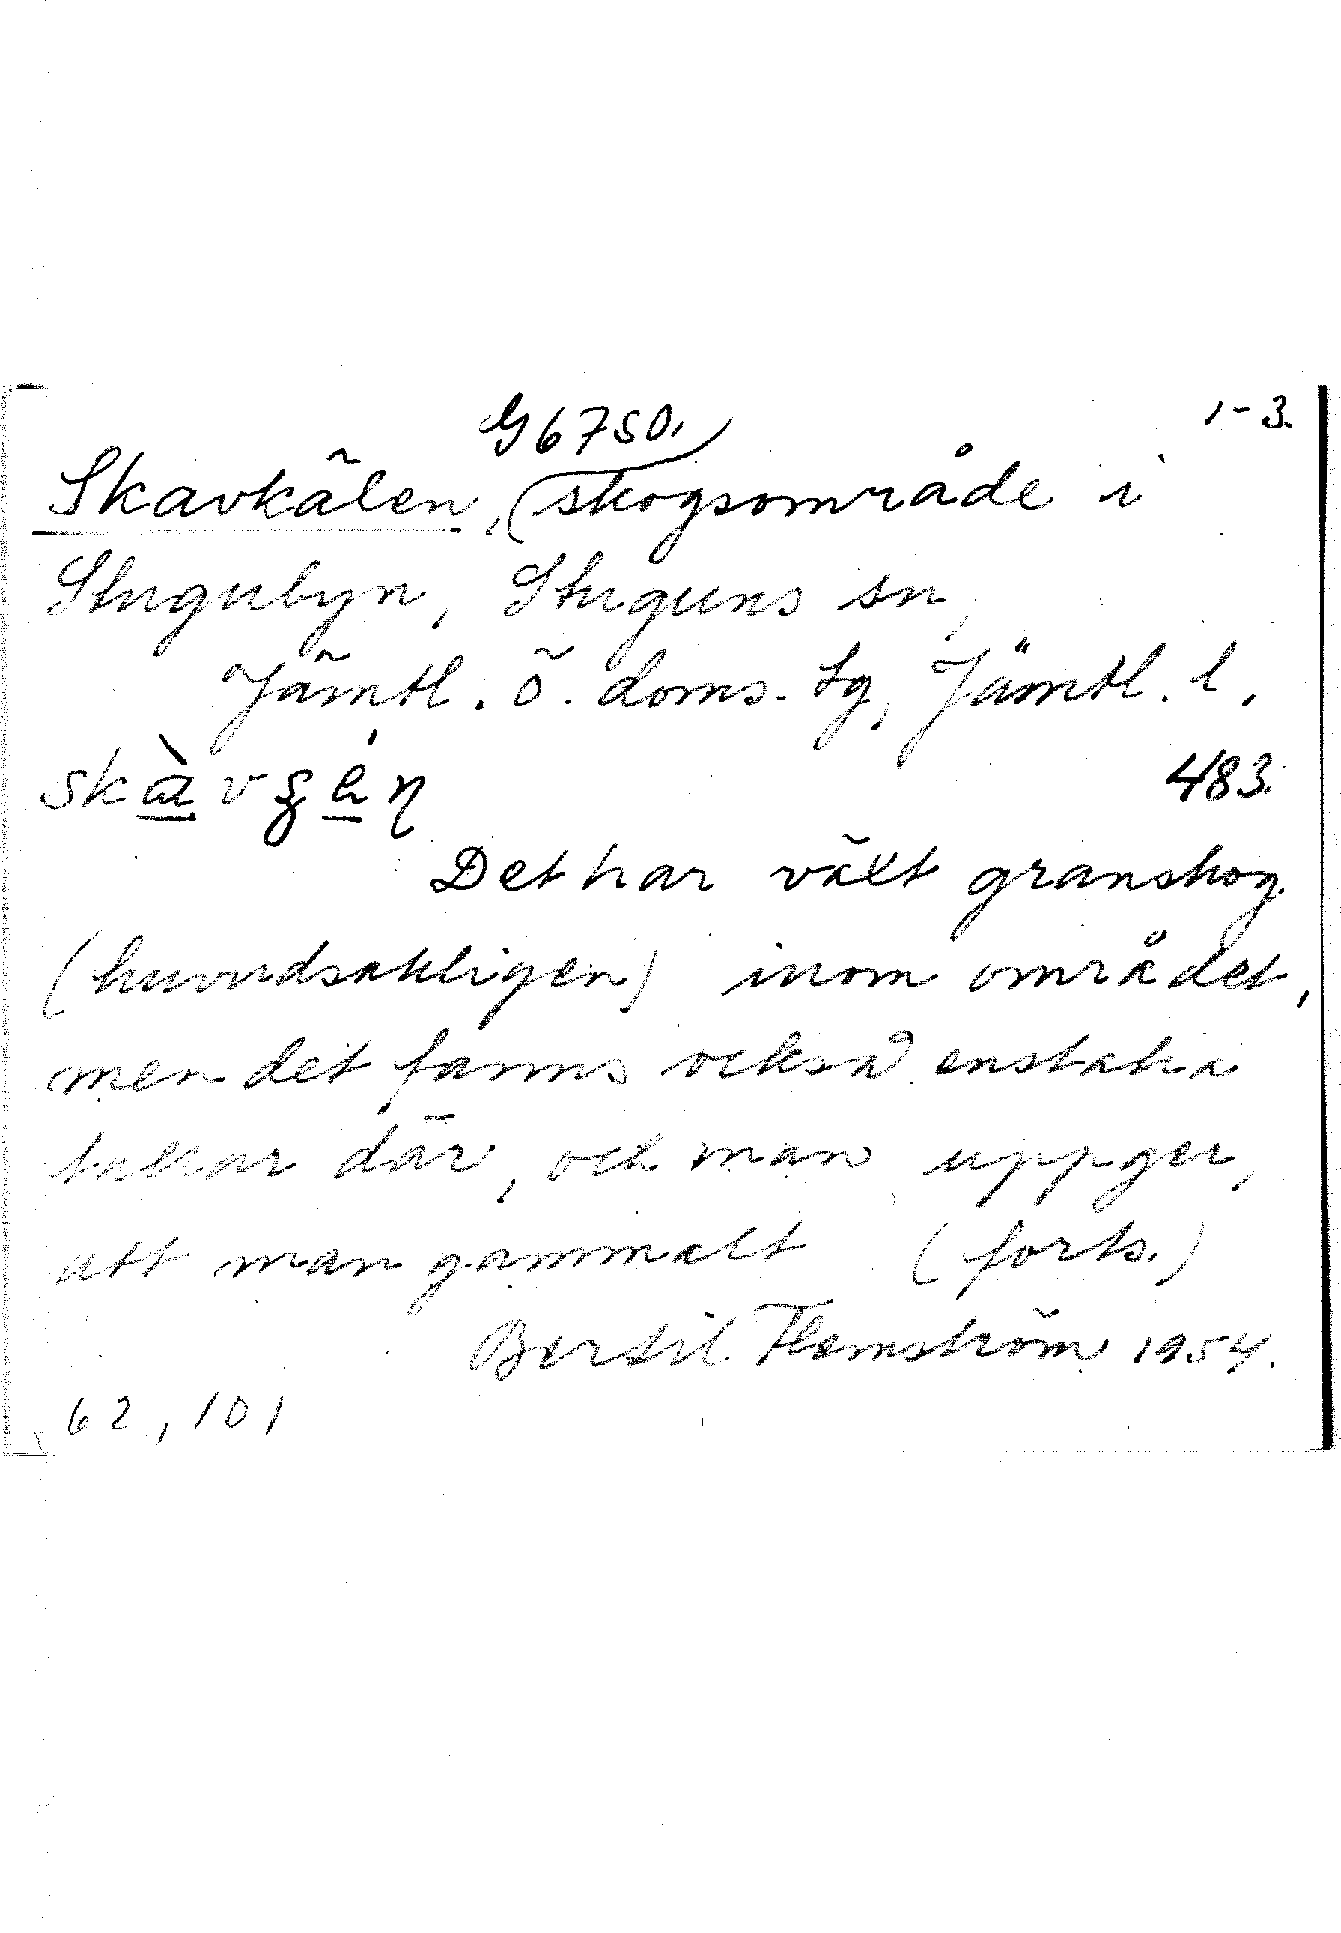 G6750. 1-3.
Skavkälen, skogsområde i
Stugubyn, Stuguns sn,
Jämtl. ö. doms. tg, Jämtl. l.
483.
Det har växt granskog
(huvudsakligen) inom området,
men det fanns också enstaka
tallar där, och man uppger,
att man gammalt (forts.)
Bertil Flemström 1954.
62, 101